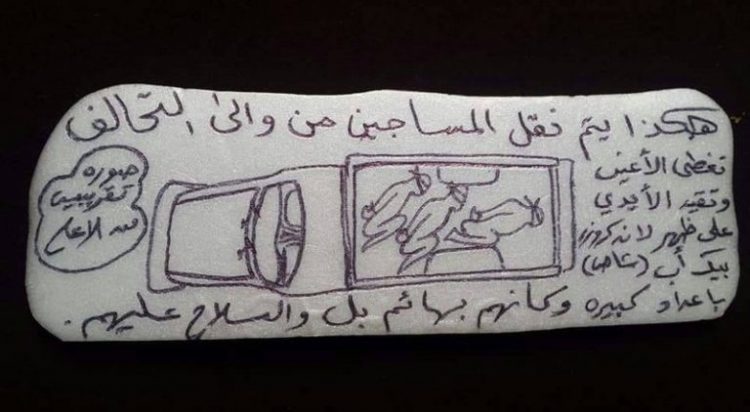 هكذا يتم نقل المساجين من وإلى التحالف
تغطى الأعين
وتقيد الأيدي
على ظهر لاندكروزر
بيك أب (شاص)
باعداد كبيره وكأنهم بهائم بل والسلاح عليهم.
صوره
تقريبيه
من الاعلى